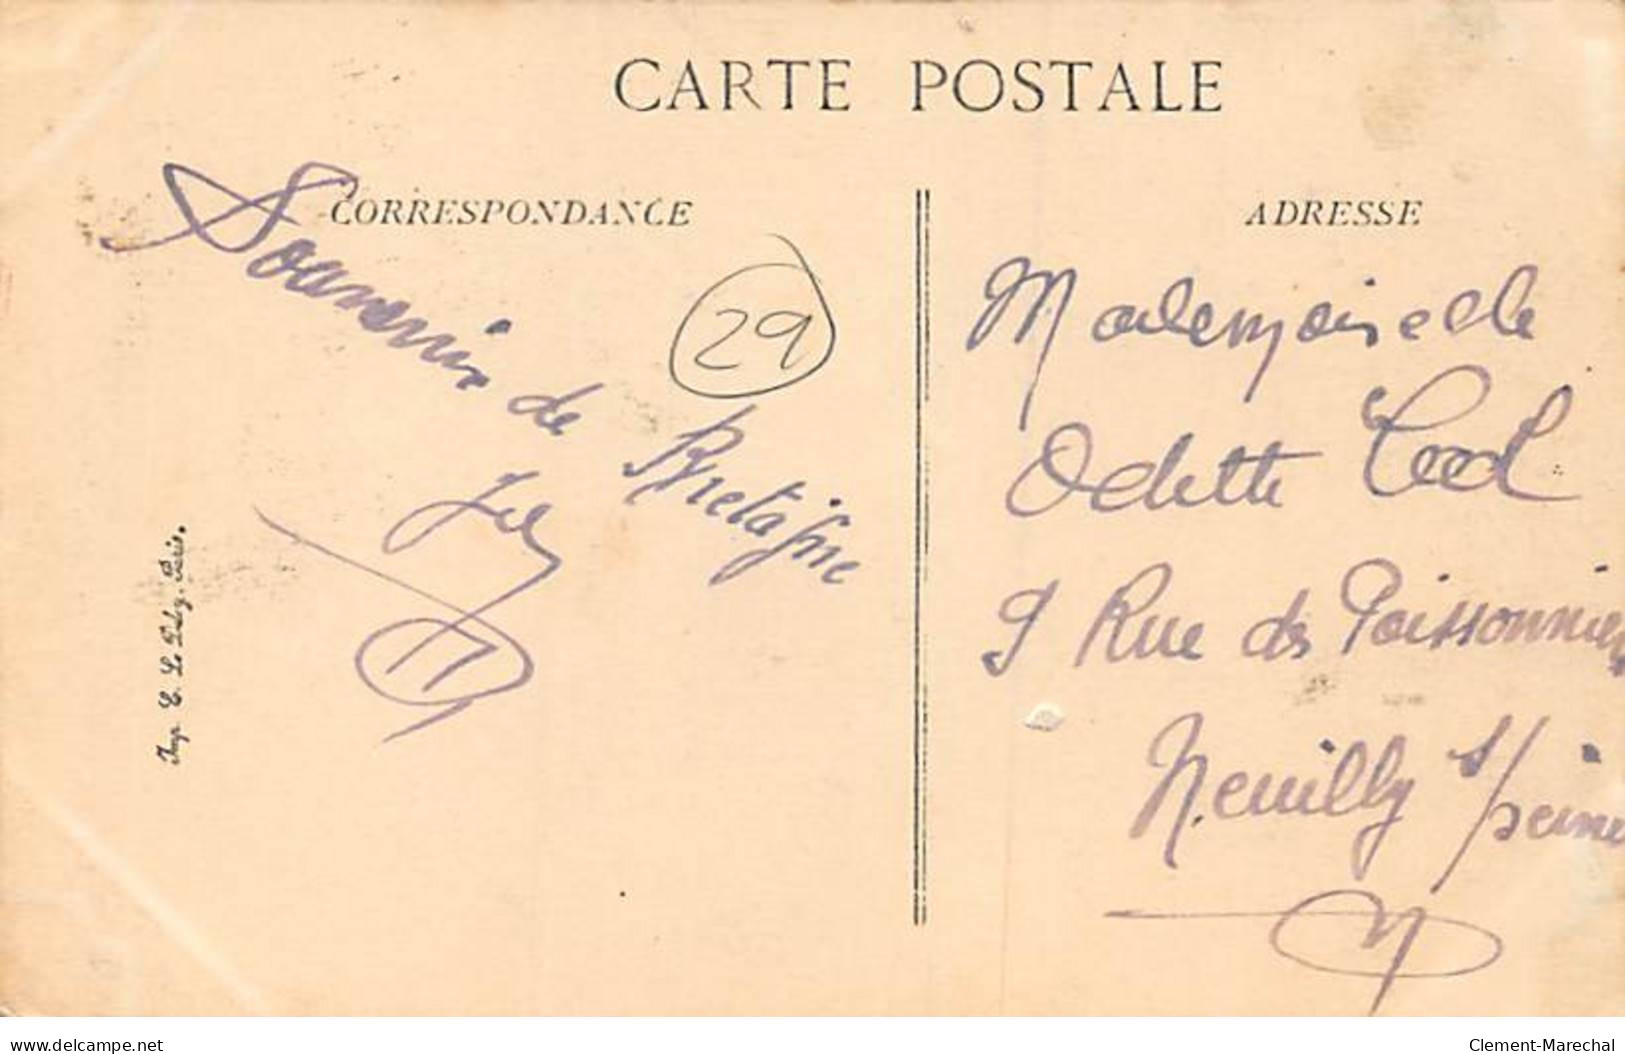 CARTE POSTALE
CORRESPONDANCE
ADRESSE
Souvenir de Bretagne
29
Mademoiselle
Odette
9 Rue des Poissonniers
Neuilly s/seine
Imp. E. Le Deley. Paris.
www.delcampe.net
Clement-Marechal